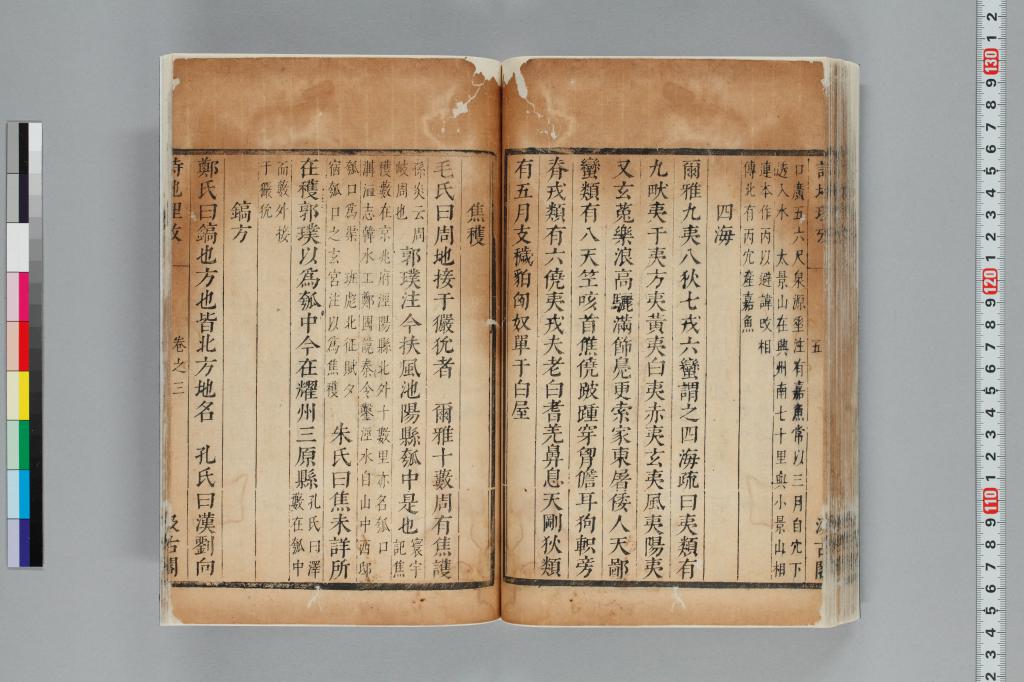 口廣五六尺泉源垂注有嘉魚常以三月自穴下
透入水　大景山在興州南七十里與小景山相
連本作丙以避諱改相
傳北有丙穴產嘉魚
四海
爾雅九夷八狄七戎六蠻謂之四海疏曰夷類有
九畎夷于夷方夷黃夷白夷赤夷玄夷風夷陽夷
又玄菟樂浪高驪滿飾鳧更索家東屠倭人天鄙
蠻類有八天竺咳首僬僥跛踵穿胷儋耳狗軹旁
脊戎類有六僥夷戎夫老白耆羌鼻息天剛狄類
有五月支穢貊匈奴單于白屋
五
焦穫
毛氏曰周地接于玁狁者　爾雅十藪周有焦護
孫炎云周
岐周也
郭璞注今扶風池陽縣瓠中是也
寰宇
記焦
穫藪在京兆府涇陽縣北外十數里亦名瓠口
溝洫志韓水工鄭國說秦令鑿涇水自山中西邸
瓠口爲渠　班彪北征賦夕
宿瓠口之玄宮注以爲焦穫
朱氏曰焦未詳所
在穫郭璞以爲瓠中今在耀州三原縣
孔氏曰澤
藪在瓠中
而藪外接
于玁狁
鎬方
鄭氏曰鎬也方也皆北方地名　孔氏曰漢劉向
卷之三